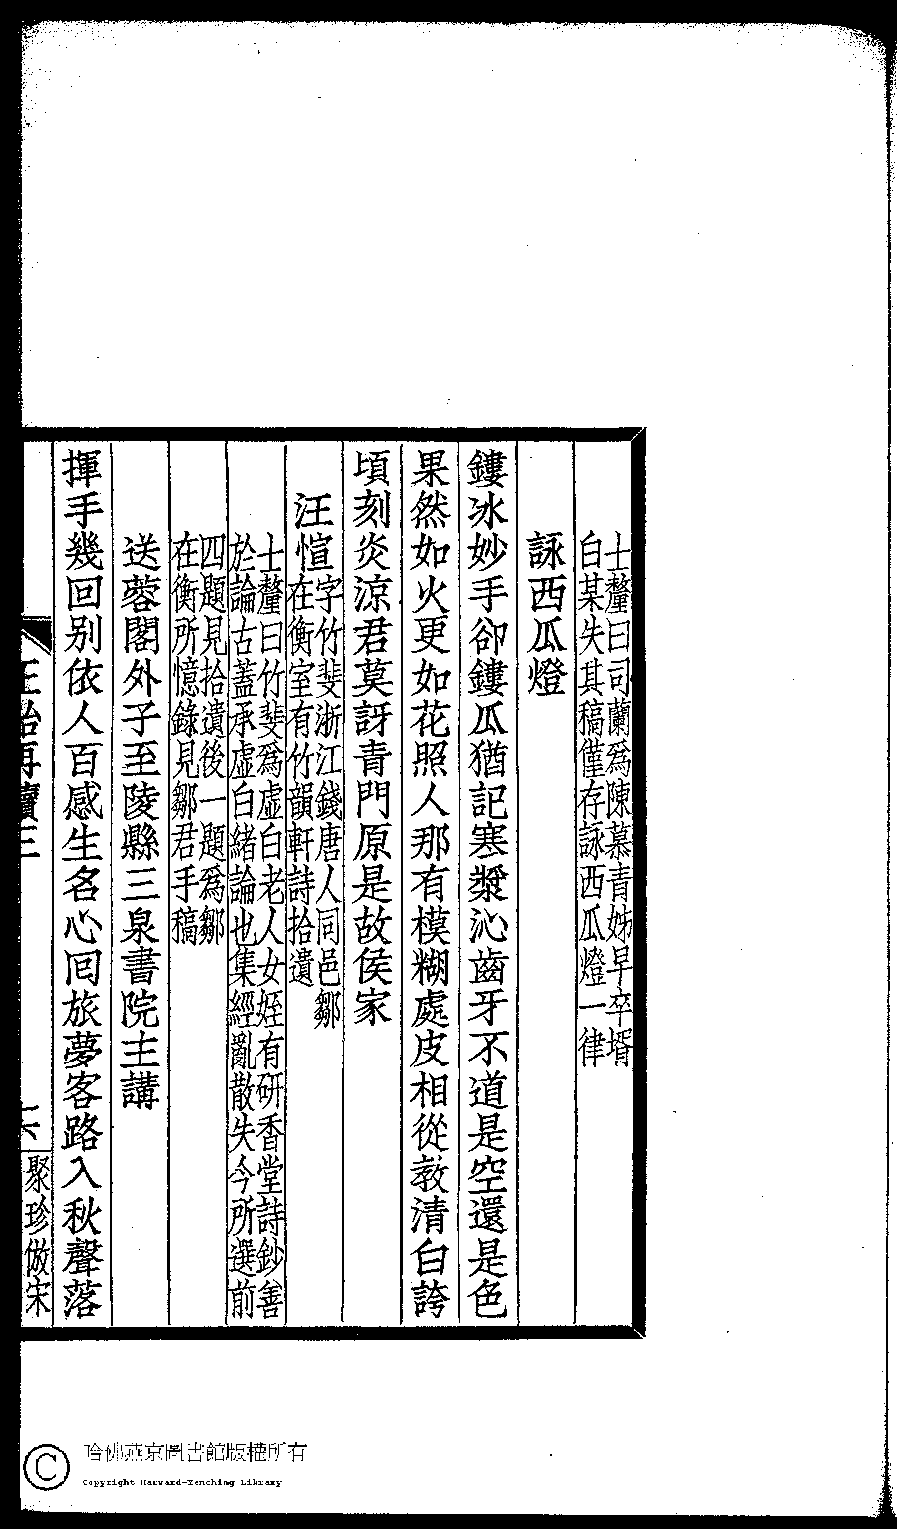 士釐曰司蘭爲陳慕青姊早卒壻
白某失其稿僅存詠西瓜燈一律
詠西瓜燈
鏤冰妙手卻鏤瓜猶記寒漿沁齒牙不道是空還是色
果然如火更如花照人那有模糊處皮相從教清白誇
頃刻炎涼君莫訝青門原是故侯家
汪愃
字竹斐浙江錢唐人同邑鄒
在衡室有竹韻軒詩拾遺
士釐曰竹斐爲虛白老人女姪有研香堂詩鈔善
於論古蓋承虛白緒論也集經亂散失今所選前
四題見拾遺後一題爲鄒
在衡所憶錄見鄒君手稿
送蓉閣外子至陵縣三泉書院主講
揮手幾回別依人百感生名心囘旅夢客路入秋聲落
聚珍倣宋
哈佛燕京圖書館版權所有
Copyright Harvard-Yenching Library